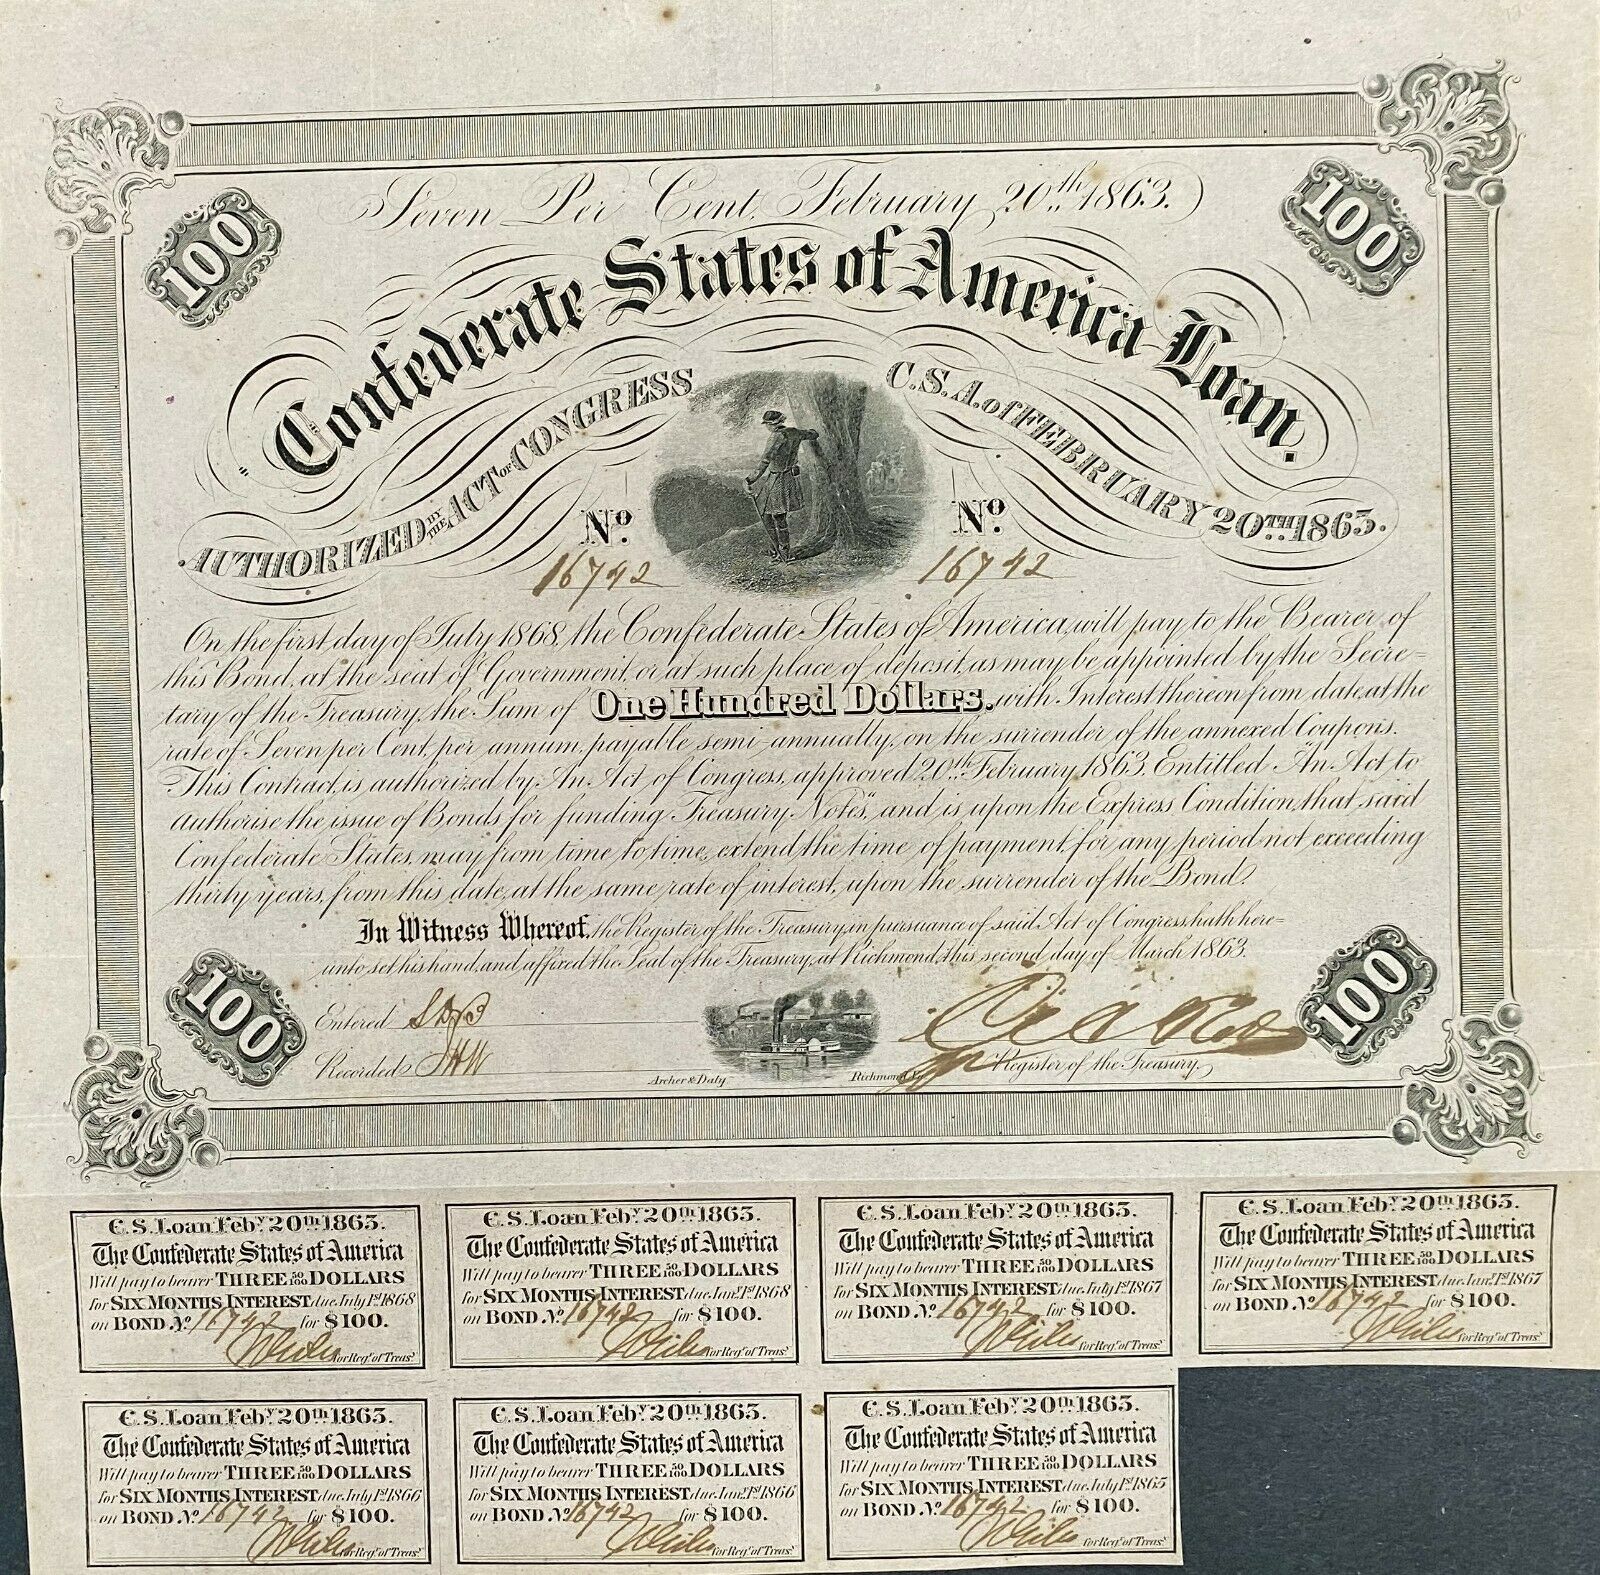 Seven Per Cent, February 20th 1863.
100
100
Confederate States of America Loan.
AUTHORIZED BY THE ACT OF CONGRESS C.S.A. of FEBRUARY 20TH 1863.
No. No.
16742 16742
On the first day of July 1868, the Confederate States of America, will pay to the Bearer of
this Bond, at the seat of Government, or at such place of deposit, as may be appointed by the Secre=
tary of the Treasury, the Sum of One Hundred Dollars. with Interest thereon from date, at the
rate of Seven per Cent, per annum, payable semi-annually, on the surrender of the annexed Coupons.
This Contract, is authorized by An Act of Congress, approved 20th February 1863, Entitled "An Act to
authorise the issue of Bonds for funding Treasury Notes", and is upon the Express Condition, that said
Confederate States, may from time to time, extend the time of payment for any period not exceeding
thirty years, from this date, at the same rate of interest, upon the surrender of the Bond.
In Witness Whereof, the Register of the Treasury, in pursuance of said Act of Congress, hath here=
unto set his hand, and affixed the Seal of the Treasury, at Richmond, this second day of March 1863.
100
100
Entered
Recorded
Register of the Treasury
Archer & Daly Richmond
C.S. Loan Feby. 20th 1863. C.S. Loan Feby. 20th 1863. C.S. Loan Feby. 20th 1863. C.S. Loan Feby. 20th 1863.
The Confederate States of America The Confederate States of America The Confederate States of America The Confederate States of America
Will pay to bearer THREE 50/100 DOLLARS Will pay to bearer THREE 50/100 DOLLARS Will pay to bearer THREE 50/100 DOLLARS Will pay to bearer THREE 50/100 DOLLARS
for SIX MONTHS INTEREST due July 1st 1868 for SIX MONTHS INTEREST due Jany. 1st 1868 for SIX MONTHS INTEREST due July 1st 1867 for SIX MONTHS INTEREST due Jany. 1st 1867
on BOND No. 16742 for $100. on BOND No. 16742 for $100. on BOND No. 16742 for $100. on BOND No. 16742 for $100.
for Regr. of Treasy. for Regr. of Treasy. for Regr. of Treasy. for Regr. of Treasy.
C.S. Loan Feby. 20th 1863. C.S. Loan Feby. 20th 1863. C.S. Loan Feby. 20th 1863.
The Confederate States of America The Confederate States of America The Confederate States of America
Will pay to bearer THREE 50/100 DOLLARS Will pay to bearer THREE 50/100 DOLLARS Will pay to bearer THREE 50/100 DOLLARS
for SIX MONTHS INTEREST due July 1st 1866 for SIX MONTHS INTEREST due Jany. 1st 1866 for SIX MONTHS INTEREST due July 1st 1865
on BOND No. 16742 for $100. on BOND No. 16742 for $100. on BOND No. 16742 for $100.
for Regr. of Treasy. for Regr. of Treasy. for Regr. of Treasy.